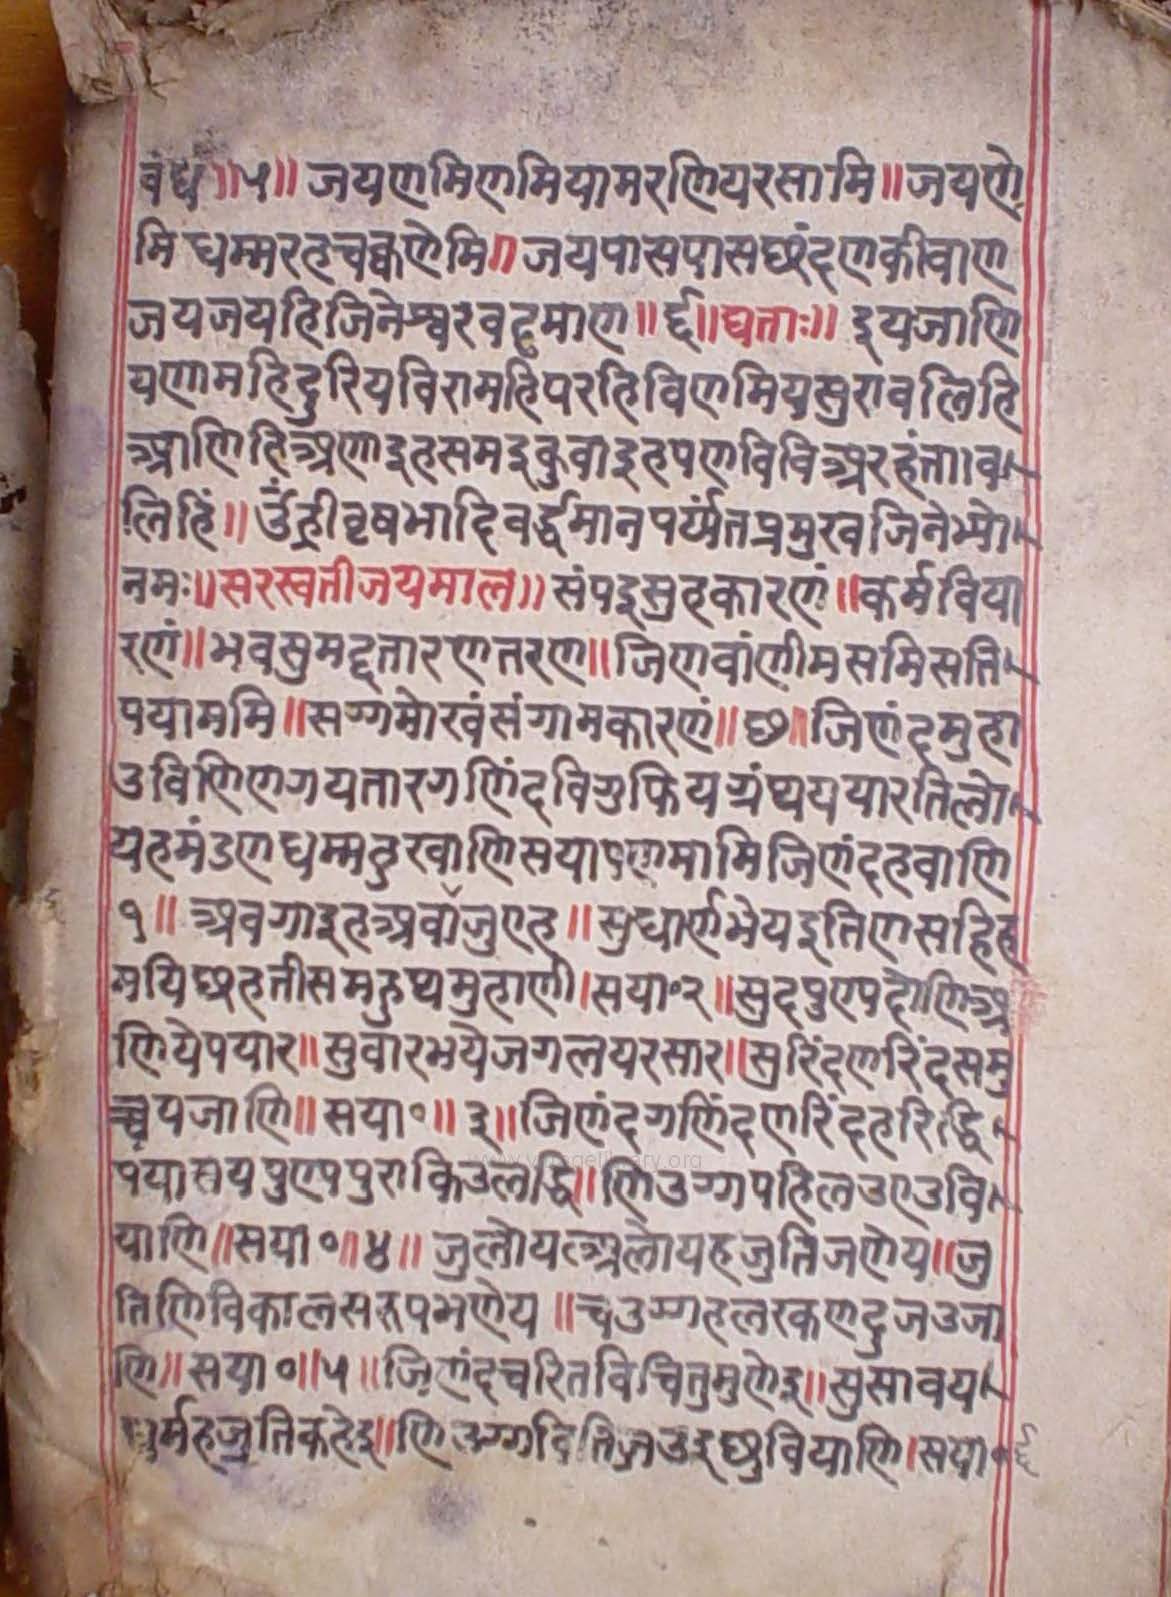 बंधु ॥५॥ जयणमिणमियामरणियरसामि ॥ जयणे
मि धम्मरहचक्कणेमि ॥ जयपासपासछंदणकीवाण
जयजयहिजिनेश्वरवद्दुमाण ॥ ६ ॥ घताः ॥ इयजाणि
यणामहिदुरियविरामहिपरहिविणमियसुरावलिहि
अणिहिअणइहसमइकुवाइहपणविविअरहंताव
लिहिं ॥ उँह्रीवृषभादिवर्द्धमानपर्य्यंतप्रमुखजिनेभ्यो
नमः ॥ सरस्वतीजयमाल ॥ संपइसुहकारणं ॥ कर्मविया
रणं ॥ भवसुमद्दतारणतरण ॥ जिणवांणीमसमिसति
पयाममि ॥ सग्गमोखंसंगामकारणं ॥ छ ॥ जिणंदमुहा
उविणिणगयतारगणिंदविगुफियग्रंथययारतिलो
यहमंडणधम्महुखाणिसयापणमामिजिणंदहवाणि
१ ॥ अवगाइहअवाँजुएह ॥ सुधार्णभेयइतिणसहिह
मयिछहतीसमहुप्यमुहाणी । सया॰२ ॥ सुदपुएपदोणिअ
णियेपयार ॥ सुवारभयेजगलयरसार ॥ सुरिंदणरिंदसमु
च्चयजाणि ॥ सया॰ ॥ ३ ॥ जिणंदगणिंदणरिंदहरिद्धि
पयासयपुएपपुराकिउलद्धि ॥ णिउग्गपहिलउएउवि
याणि ॥ सया॰ ॥ ४ ॥ जुलोयअलोयहजुतिजणेय ॥ जु
तिणिविकालसरुपभणेय ॥ चउग्गहलरकणदुजउजा
णि ॥ सया॰ ॥ ५ ॥ जिणंदचरितविचितुमुणेइ ॥ सुसावय
धुर्महजुतिकहेइ ॥ णिउग्गवितिजउइछुवियाणि । सया॰ ६
www.yvragelibrary.org